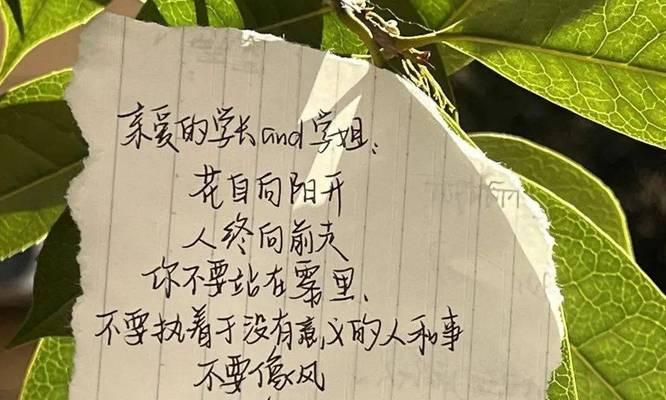 亲爱的学长and学姐:
花自向阳开
人终向前走
你不要站在雾里、
不要执着于没有意义的人和事
不要像风